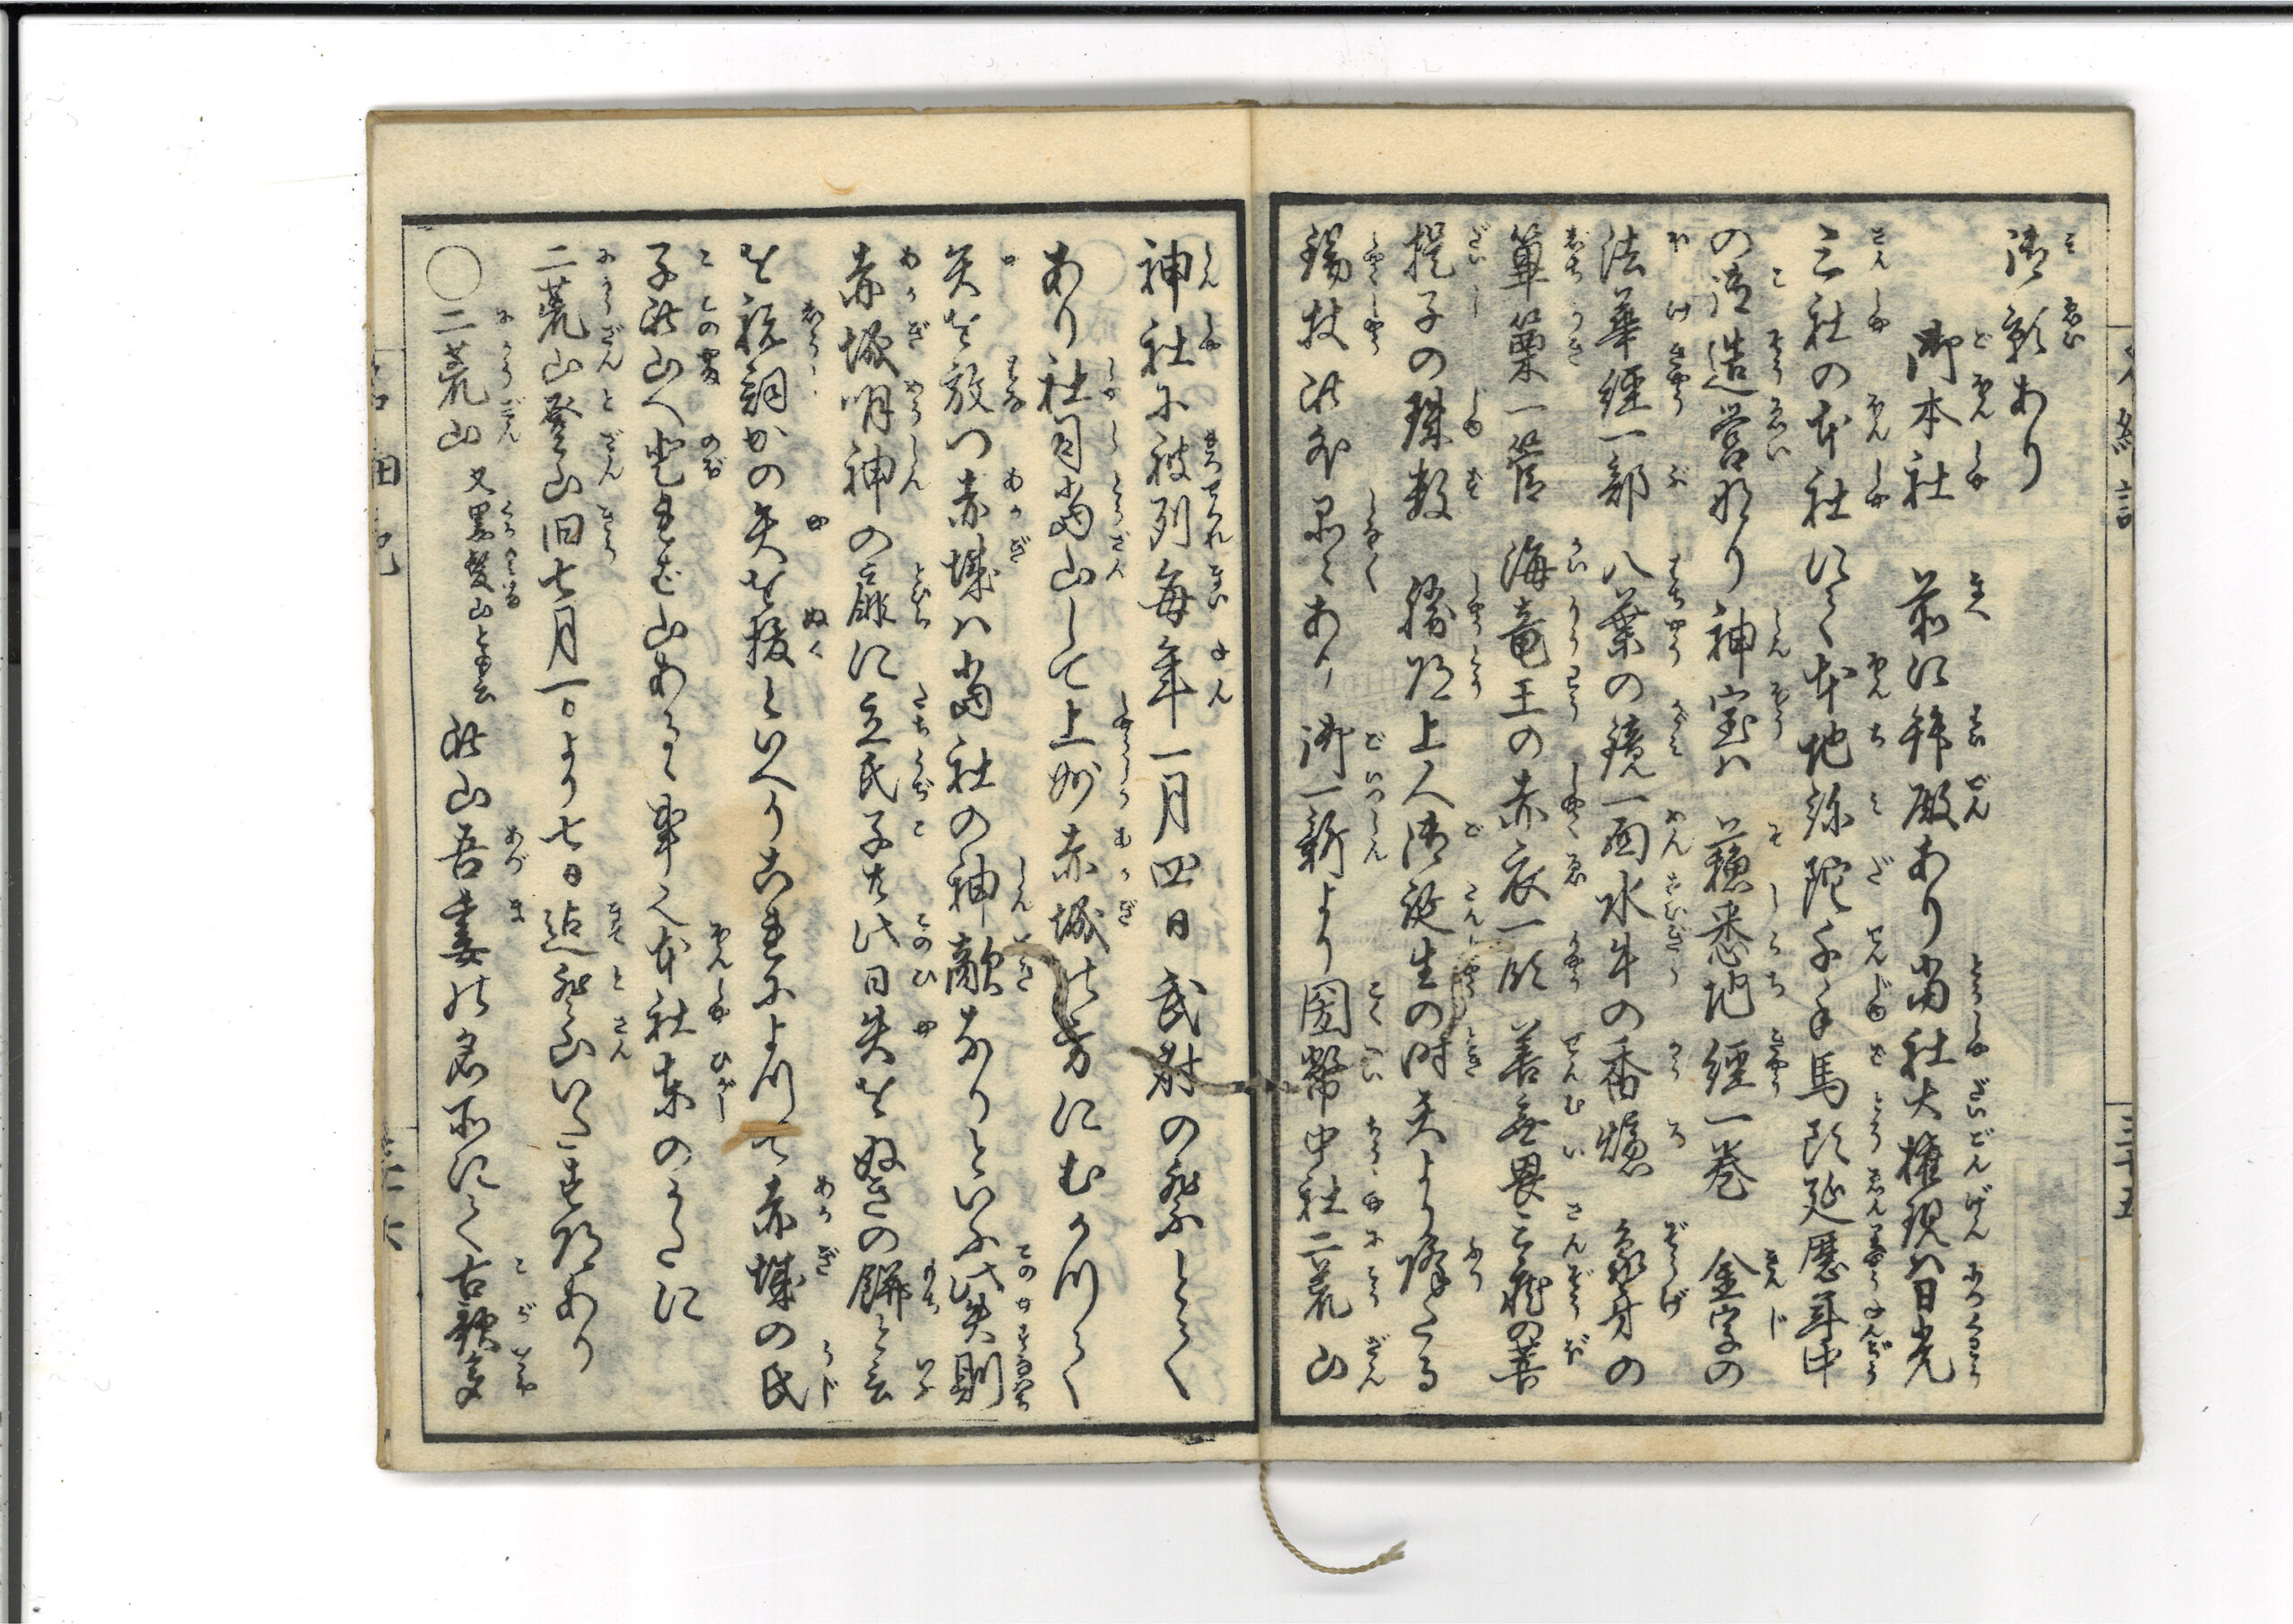 御影あり
御本社　前に拝殿あり当社大権現ハ日光
三社の本社にて本地弥陀千手馬頭延暦年中
の御造営なり神宝ハ　蘓悉地経一巻　金字の
法華経一部　八葉の鏡一面水牛の香爐　象牙の
篳篥一管　海竜王の赤衣一領　善無畏三蔵の菩
提子の珠数　勝道上人御誕生の時天より降たる
錫杖此外品々あり　御一新より国幣中社二荒山
神社に被列毎年一月四日武射の祭とて
あり社司当山して上州赤城の方にむかつて
矢を放つ赤城ハ当社の神敵なりといふ此矢則
赤城明神の扉に立氏子共此日矢をぬきの餅と云
を祝詞かの矢を抜といへり古よりよつて赤城の氏
子此山へ登れば山あるゝ事之本社東のかたに
二荒山登山旧七月一日より七日迄登山いたす道あり
〇二荒山　又黒髪山とも云　此山吾妻の名所にて古歌多
三十五